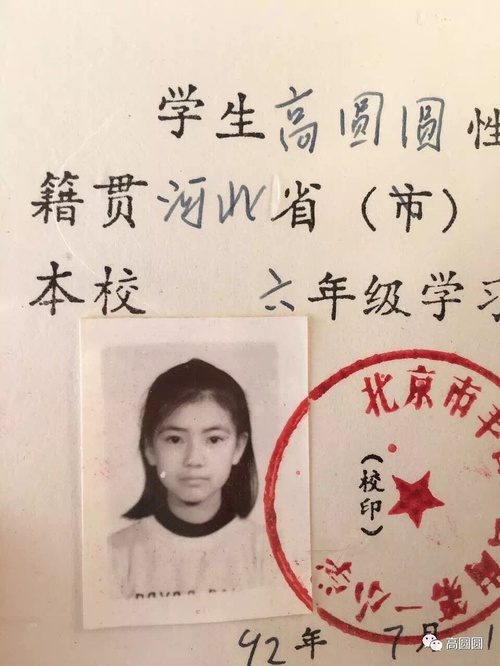 学生高圆圆性
籍贯河北省（市）
本校 六年级学习
北京市
（校印）
第一
92年 7月 1
高圆圆